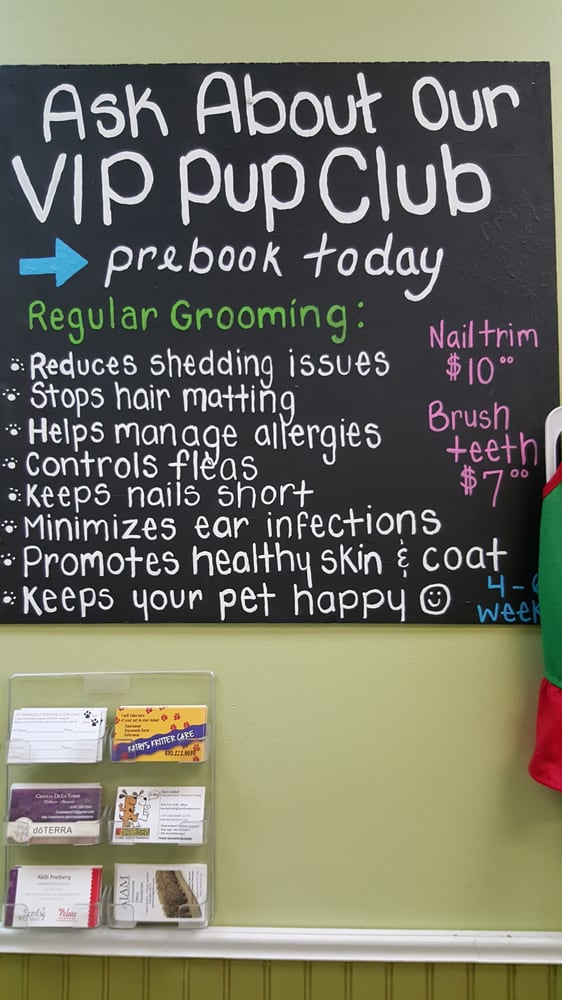 Ask About Our
VIP PupClub
prebook today
Regular Grooming:
Reduces shedding issues
Stops hair matting
Helps manage allergies
Controls fleas
Keeps nails short
Minimizes ear infections
Promotes healthy skin & coat
Keeps your pet happy
Nail trim
$10⁰⁰
Brush
teeth
$7⁰⁰
4-6
week
KATHY'S KRITTER CARE
dōTERRA
Kelli Freiberg
Scentsy
Velata
AIAM